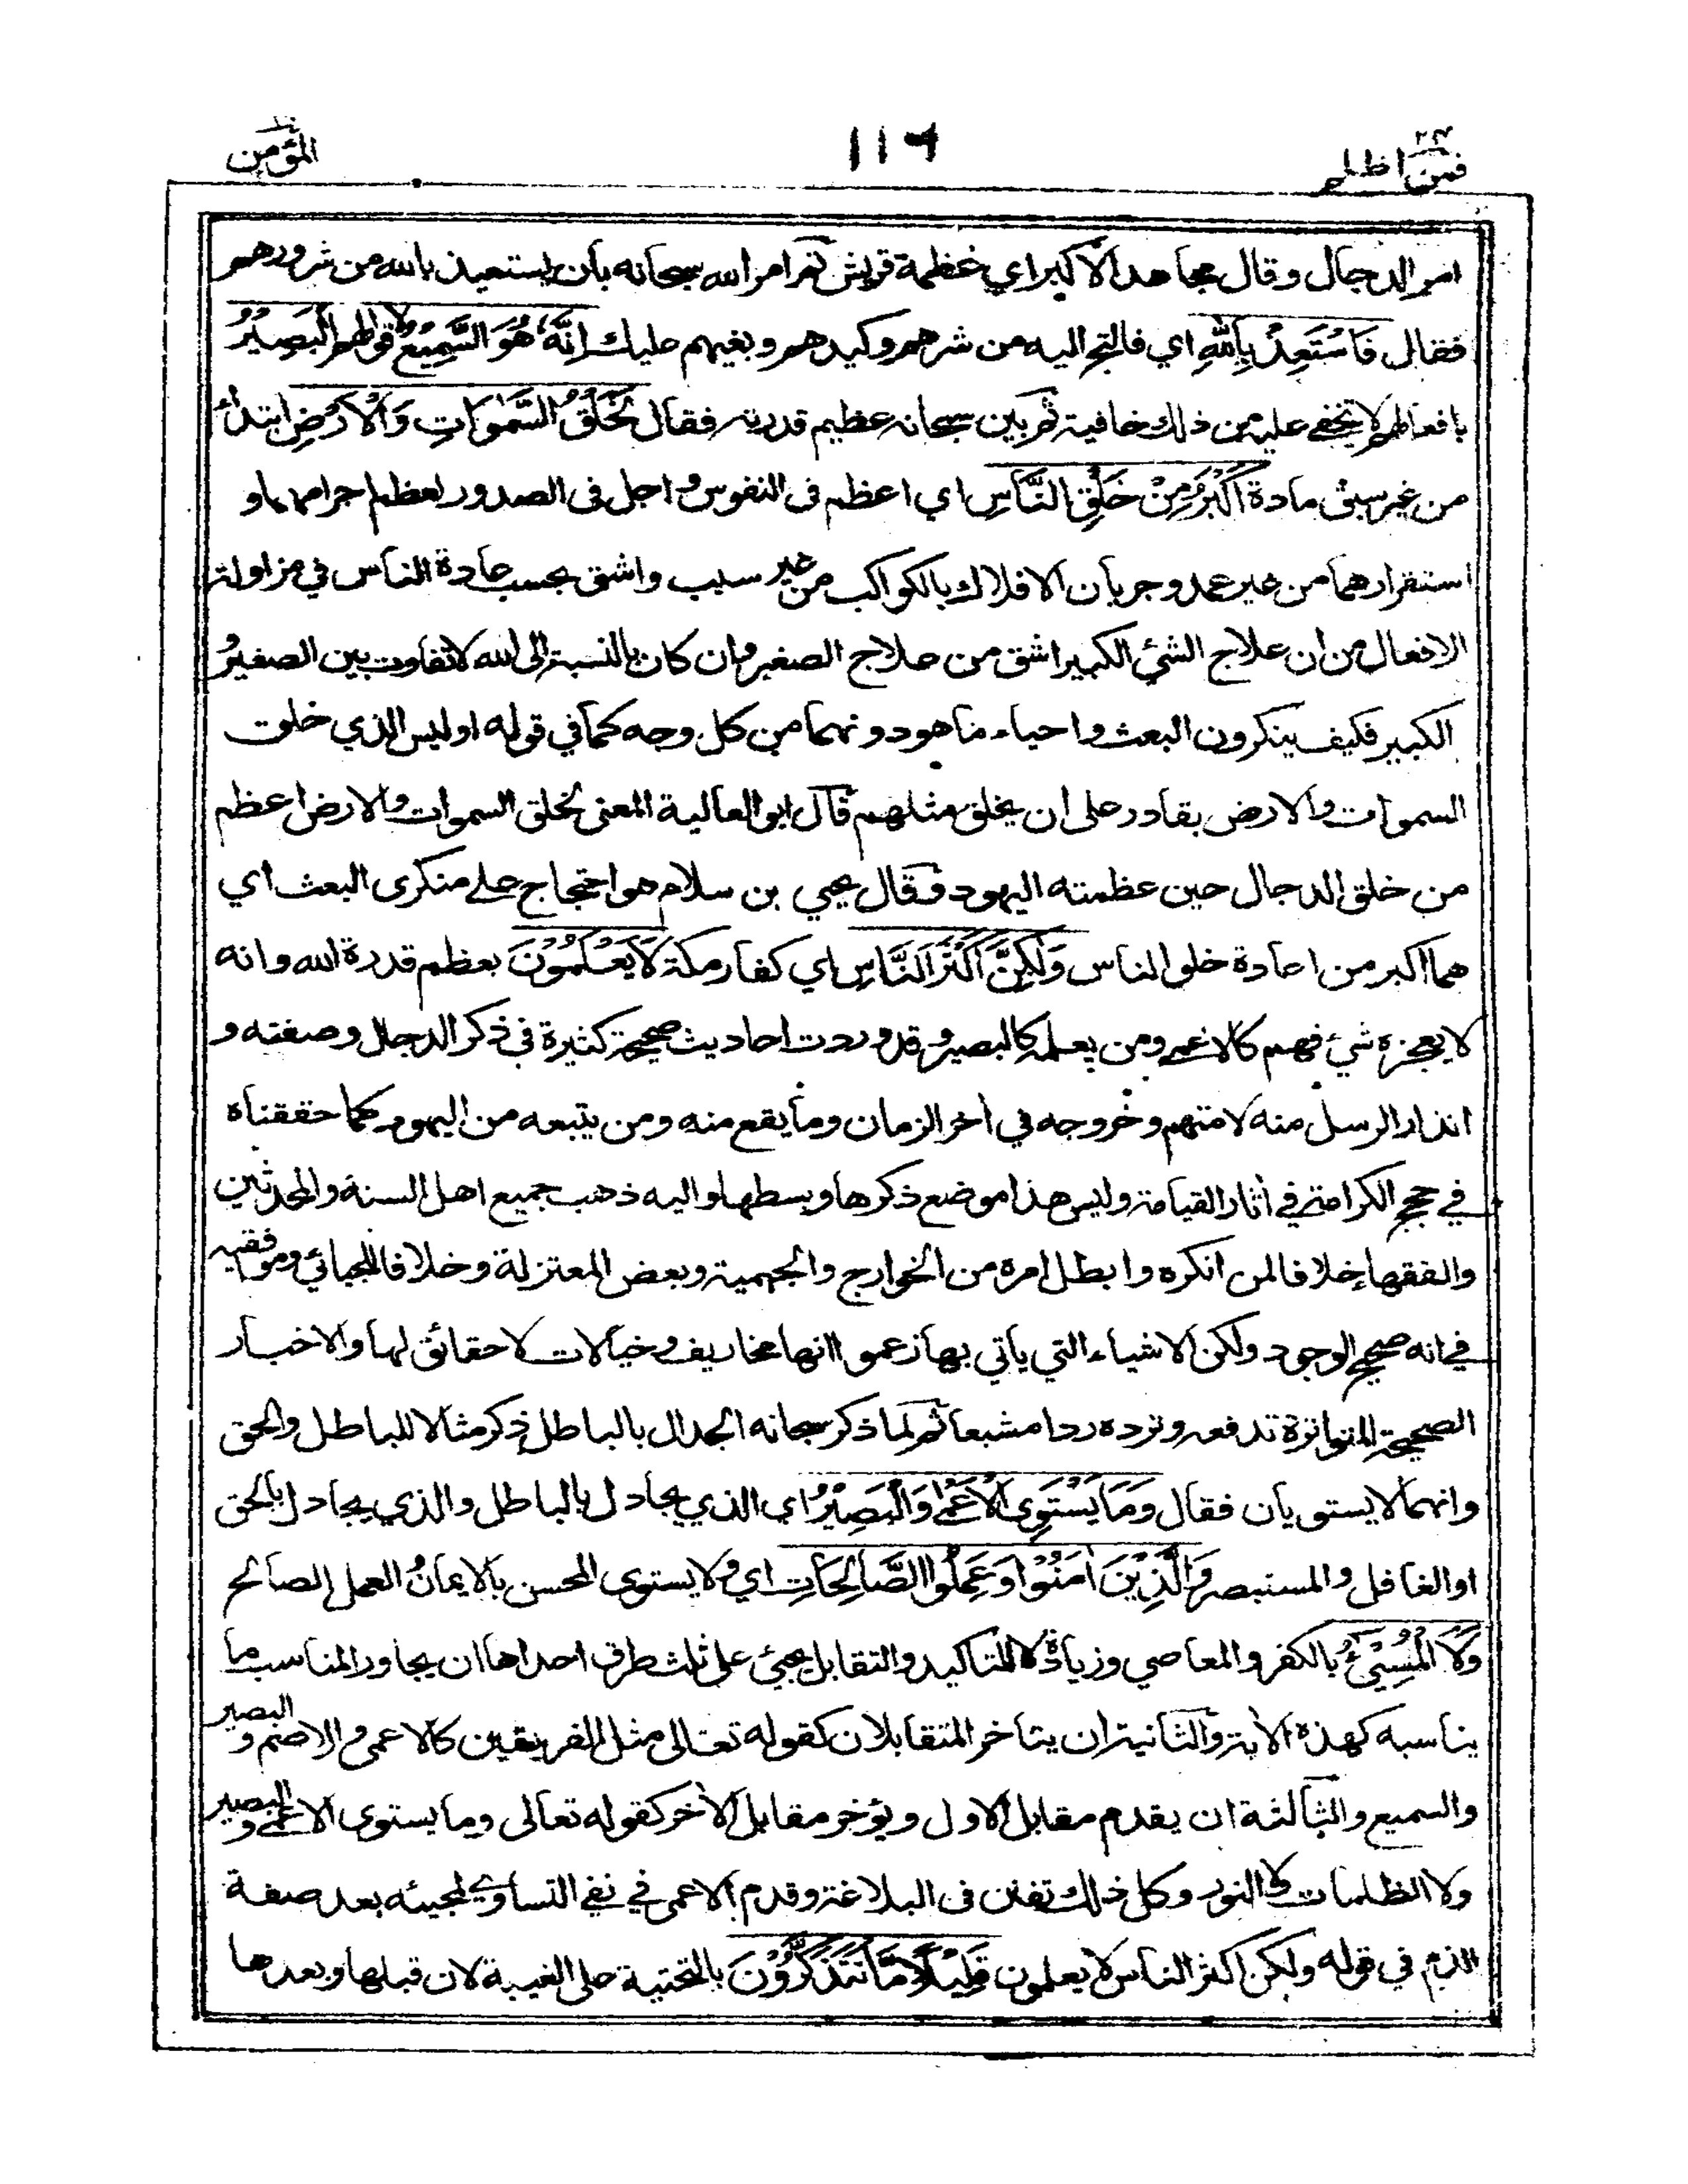 فمن اظلم ٢٤
١١٦
المؤمن
امر الدجال وقال مجاهد الأكبر اي عظمة قريش ثم امر الله سبحانه بأن يستعيذ بالله من شرورهم
فقال فَاسْتَعِذْ بِاللهِ اي فالتج اليه من شرهم وكيدهم وبغيهم عليك اِنَّهُ هُوَ السَّمِيْعُ لاقوالهم الْبَصِيْرُ
بافعالهم لا تخفى عليه من ذلك خافية ثم بين سبحانه عظيم قدرته فقال لَخَلْقُ السَّمٰوَاتِ وَالْاَرْضِ ابتداء
من غير سبق مادة اَكْبَرُ مِنْ خَلْقِ النَّاسِ اي اعظم في النفوس واجل في الصدور لعظم اجرامهما و
استقرارهما من غير عمد وجريان الافلاك بالكواكب من غير سبب واشق بحسب عادة الناس في مزاولة
الافعال من ان علاج الشئ الكبير اشق من علاج الصغير وان كان بالنسبة الى الله لا تفاوت بين الصغير و
الكبير فكيف ينكرون البعث واحياء ما هو دونهما من كل وجه كما في قوله اوليس الذي خلق
السموات والارض بقادر على ان يخلق مثلهم قال ابو العالية المعنى لخلق السموات والارض اعظم
من خلق الدجال حين عظمته اليهود وقال يحيى بن سلام هو احتجاج على منكرى البعث اي
هما اكبر من اعادة خلق الناس وَلٰكِنَّ اَكْثَرَ النَّاسِ اي كفار مكة لَا يَعْلَمُوْنَ بعظم قدرة الله وانه
لا يعجزه شئ فهم كالاعمى ومن يعلمه كالبصير وقد وردت احاديث صحيحة كثيرة في ذكر الدجال وصفته و
انذار الرسل منه لامتهم وخروجه في اخر الزمان وما يقع منه ومن يتبعه من اليهود كما حققناه
في حجج الكرامة في اثار القيامة وليس هذا موضع ذكرها وبسطها واليه ذهب جميع اهل السنة والمحدثين
والفقهاء خلافا لمن انكره وابطل امره من الخوارج والجهمية وبعض المعتزلة وخلافا للجبائي وموافقيه
في انه صحيح الوجود ولكن الاشياء التي يأتي بها زعموا انها مخاريف وخيالات لا حقائق لها والاخبار
الصحيحة المتواترة تدفعه وترده ردا مشبعا ثم لما ذكر سبحانه الجدال بالباطل ذكر مثالا للباطل والحق
وانهما لا يستويان فقال وَمَا يَسْتَوِى الْاَعْمٰى وَالْبَصِيْرُ اي الذي يجادل بالباطل والذي يجادل بالحق
او الغافل والمستبصر وَالَّذِيْنَ اٰمَنُوْا وَعَمِلُوا الصَّالِحَاتِ اي ولا يستوى المحسن بالايمان والعمل الصالح
وَلَا الْمُسِىْءُ بالكفر والمعاصي وزيادة لا للتاكيد والتقابل يجئ على ثلث طرق احداها ان يجاور المناسب ما
يناسبه كهذه الاية والثانية ان يتاخر المتقابلان كقوله تعالى مثل الفريقين كالاعمى والاصم و البصير
والسميع والثالثة ان يقدم مقابل الاول ويؤخر مقابل الاخر كقوله تعالى وما يستوى الاعمى و البصير
ولا الظلمات ولا النور وكل ذلك تفنن في البلاغة وقدم الاعمى في نفي التساوي لمجيئه بعد صفة
الذم في قوله ولكن اكثر الناس لا يعلمون قَلِيْلًا مَّا تَتَذَكَّرُوْنَ بالتحتية على الغيبة لان قبلها وبعدها